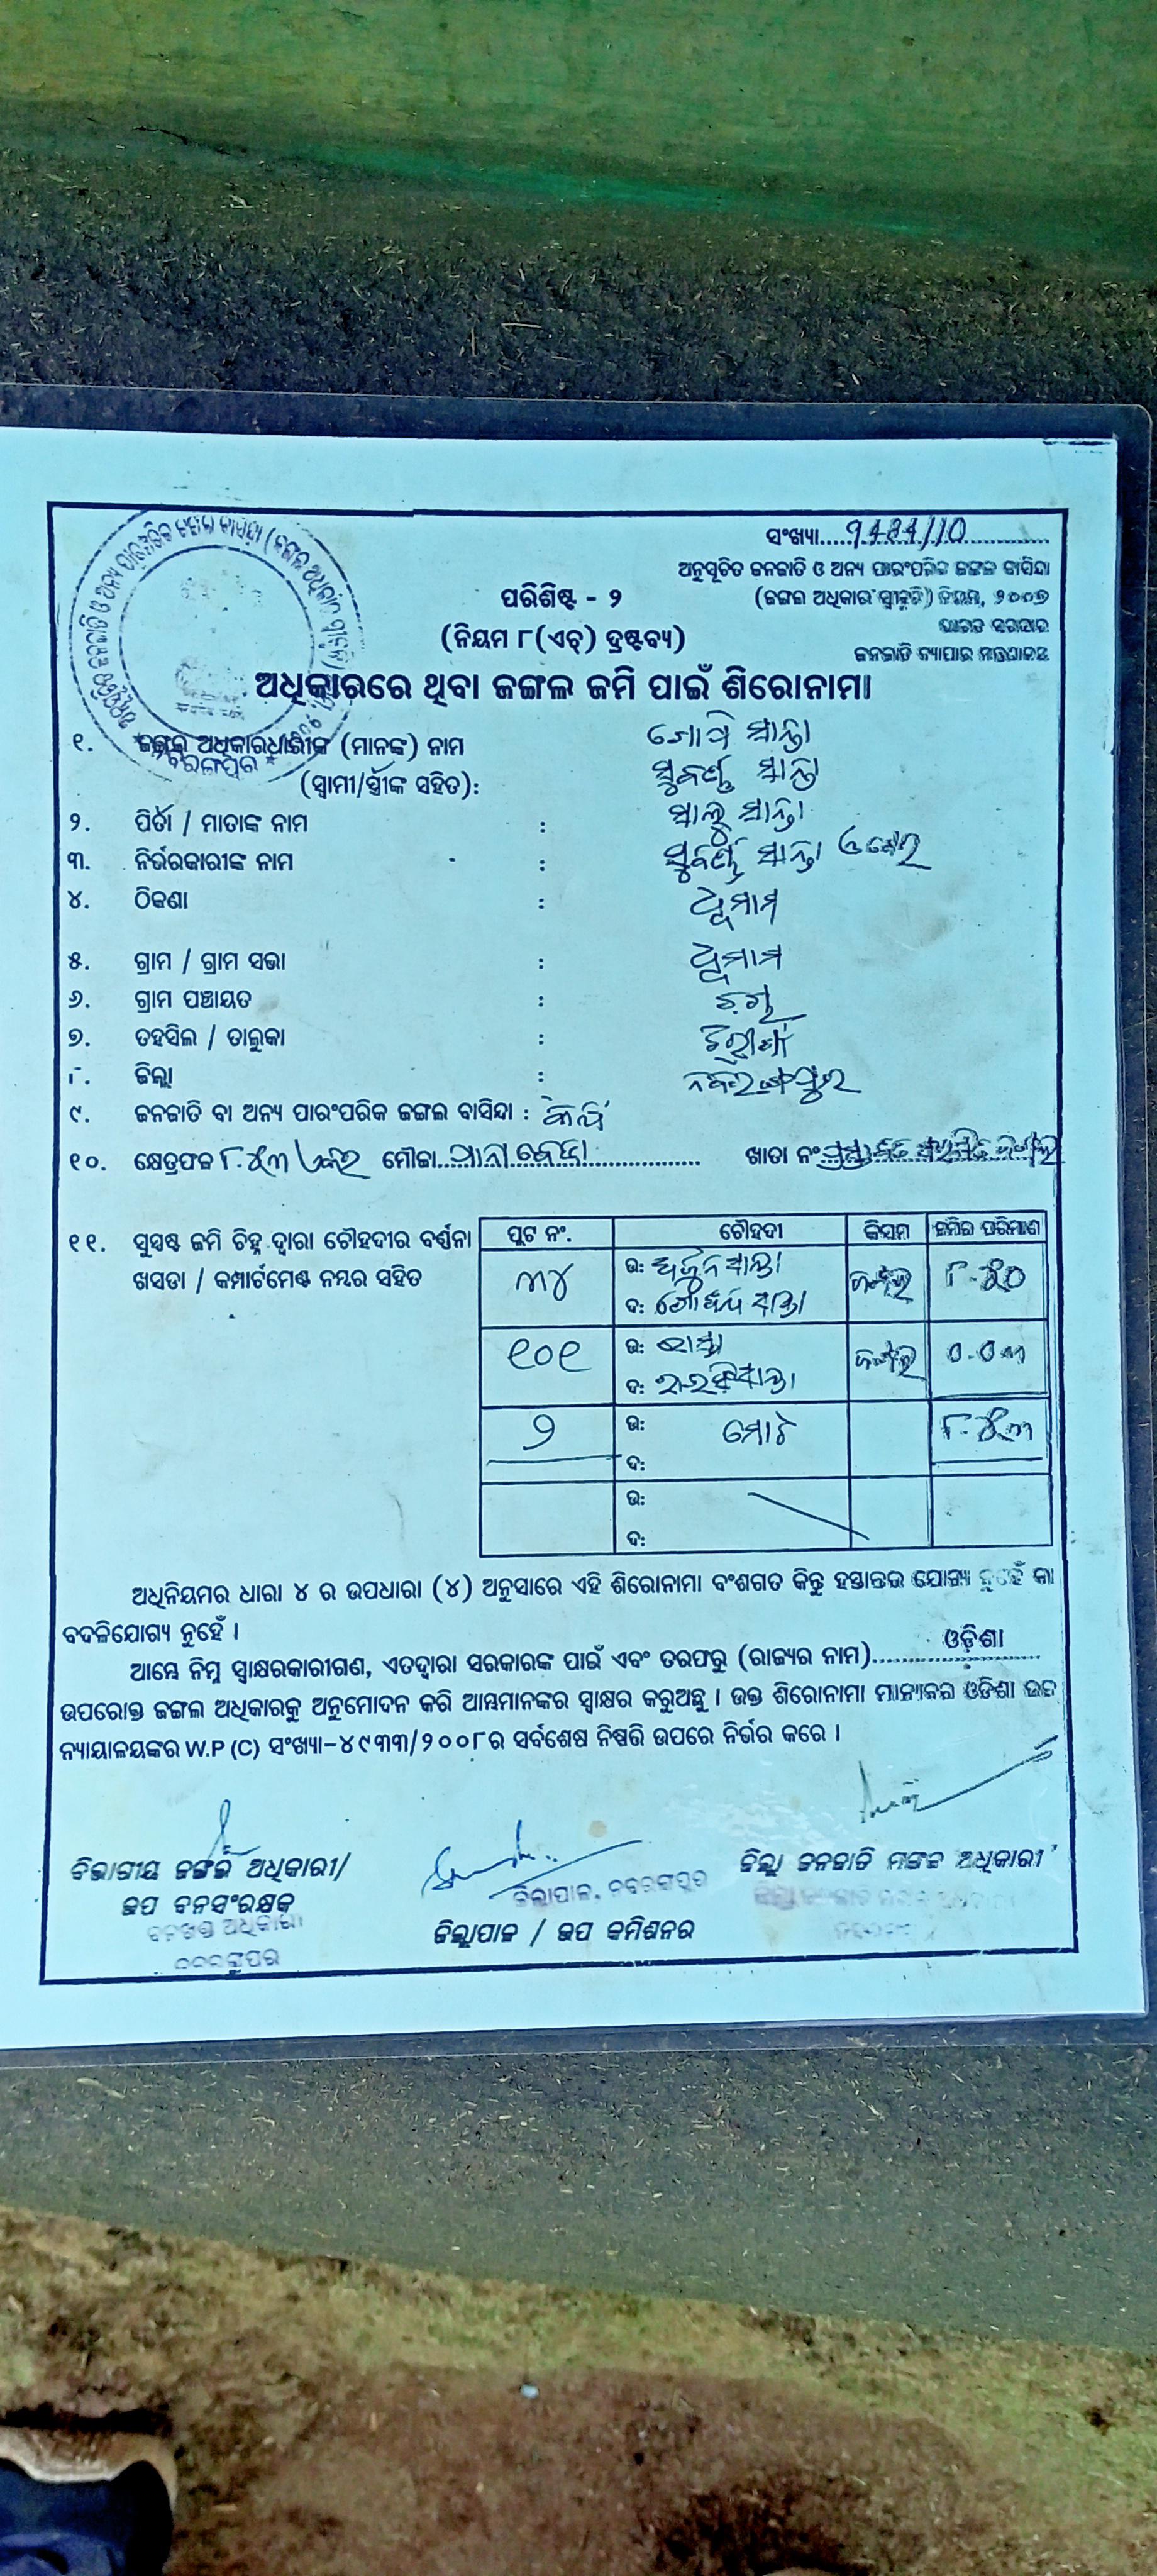 ସଂଖ୍ୟା.....9484/10
ଅନୁସୂଚିତ ଜନଜାତି ଓ ଅନ୍ୟ ପାରଂପରିକ ଜଙ୍ଗଲ ବାସିନ୍ଦା
(ଜଙ୍ଗଲ ଅଧିକାର ସ୍ୱୀକୃତି) ନିୟମ, ୨୦୦୭
ଭାରତ ସରକାର
ଜନଜାତି ବ୍ୟାପାର ମନ୍ତ୍ରଣାଳୟ
ପରିଶିଷ୍ଟ - ୨
(ନିୟମ ୮(ଏଚ୍) ଦ୍ରଷ୍ଟବ୍ୟ)
ଅଧିକାରରେ ଥିବା ଜଙ୍ଗଲ ଜମି ପାଇଁ ଶିରୋନାମା
୧. ଜଙ୍ଗଲ ଅଧିକାରଧାରୀଙ୍କ (ମାନଙ୍କ) ନାମ ଗୋପି ସାନ୍ତା
(ସ୍ୱାମୀ/ସ୍ତ୍ରୀଙ୍କ ସହିତ): ସୁବର୍ଣ୍ଣ ସାନ୍ତା
୨. ପିତା / ମାତାଙ୍କ ନାମ : ସାଲୁ ସାନ୍ତା
୩. ନିର୍ଭରକାରୀଙ୍କ ନାମ : ସୁବର୍ଣ୍ଣ ସାନ୍ତା
୪. ଠିକଣା :
୫. ଗ୍ରାମ / ଗ୍ରାମ ସଭା :
୬. ଗ୍ରାମ ପଞ୍ଚାୟତ :
୭. ତହସିଲ / ତାଲୁକା :
୮. ଜିଲ୍ଲା : ନବରଙ୍ଗପୁର
୯. ଜନଜାତି ବା ଅନ୍ୟ ପାରଂପରିକ ଜଙ୍ଗଲ ବାସିନ୍ଦା :
୧୦. କ୍ଷେତ୍ରଫଳ ୮.୫୩ ଏକର ମୌଜା.......... ଖାତା ନଂ
୧୧. ସୁସ୍ପଷ୍ଟ ଜମି ଚିହ୍ନ ଦ୍ୱାରା ଚୌହଦୀର ବର୍ଣ୍ଣନା
ଖସଡା / କମ୍ପାର୍ଟମେଣ୍ଟ ନମ୍ବର ସହିତ
ପ୍ଲଟ ନଂ. ଚୌହଦୀ କିସମ ଜମିର ପରିମାଣ
୩୪ ଉ: ଅର୍ଜୁନ ସାନ୍ତା ଜଙ୍ଗଲ ୮.୫୦
ଦ: ସାନ୍ତା
୧୦୧ ଉ: ରାସ୍ତା ଜଙ୍ଗଲ ୦.୦୩
ଦ:
୨ ଉ: ମୋଟ ୮.୫୩
ଦ:
ଉ:
ଦ:
ଅଧିନିୟମର ଧାରା ୪ ର ଉପଧାରା (୪) ଅନୁସାରେ ଏହି ଶିରୋନାମା ବଂଶଗତ କିନ୍ତୁ ହସ୍ତାନ୍ତର ଯୋଗ୍ୟ ନୁହେଁ ବା
ବଦଳିଯୋଗ୍ୟ ନୁହେଁ ।
ଆମ୍ଭେ ନିମ୍ନ ସ୍ୱାକ୍ଷରକାରୀଗଣ, ଏତଦ୍ୱାରା ସରକାରଙ୍କ ପାଇଁ ଏବଂ ତରଫରୁ (ରାଜ୍ୟର ନାମ)......ଓଡ଼ିଶା......
ଉପରୋକ୍ତ ଜଙ୍ଗଲ ଅଧିକାରକୁ ଅନୁମୋଦନ କରି ଆମ୍ଭମାନଙ୍କର ସ୍ୱାକ୍ଷର କରୁଅଛୁ । ଉକ୍ତ ଶିରୋନାମା ମାନ୍ୟବର ଓଡିଶା ଉଚ୍ଚ
ନ୍ୟାୟାଳୟଙ୍କର W.P (C) ସଂଖ୍ୟା-୪୯୩୩/୨୦୦୮ର ସର୍ବଶେଷ ନିଷ୍ପତ୍ତି ଉପରେ ନିର୍ଭର କରେ ।
ବିଭାଗୀୟ ଜଙ୍ଗଲ ଅଧିକାରୀ/
ଉପ ବନସଂରକ୍ଷକ
ବନଖଣ୍ଡ ଅଧିକାରୀ
ନବରଙ୍ଗପୁର
ଜିଲ୍ଲାପାଳ, ନବରଙ୍ଗପୁର
ଜିଲ୍ଲାପାଳ / ଉପ କମିଶନର
ଜିଲ୍ଲା ଜନଜାତି ମଙ୍ଗଳ ଅଧିକାରୀ